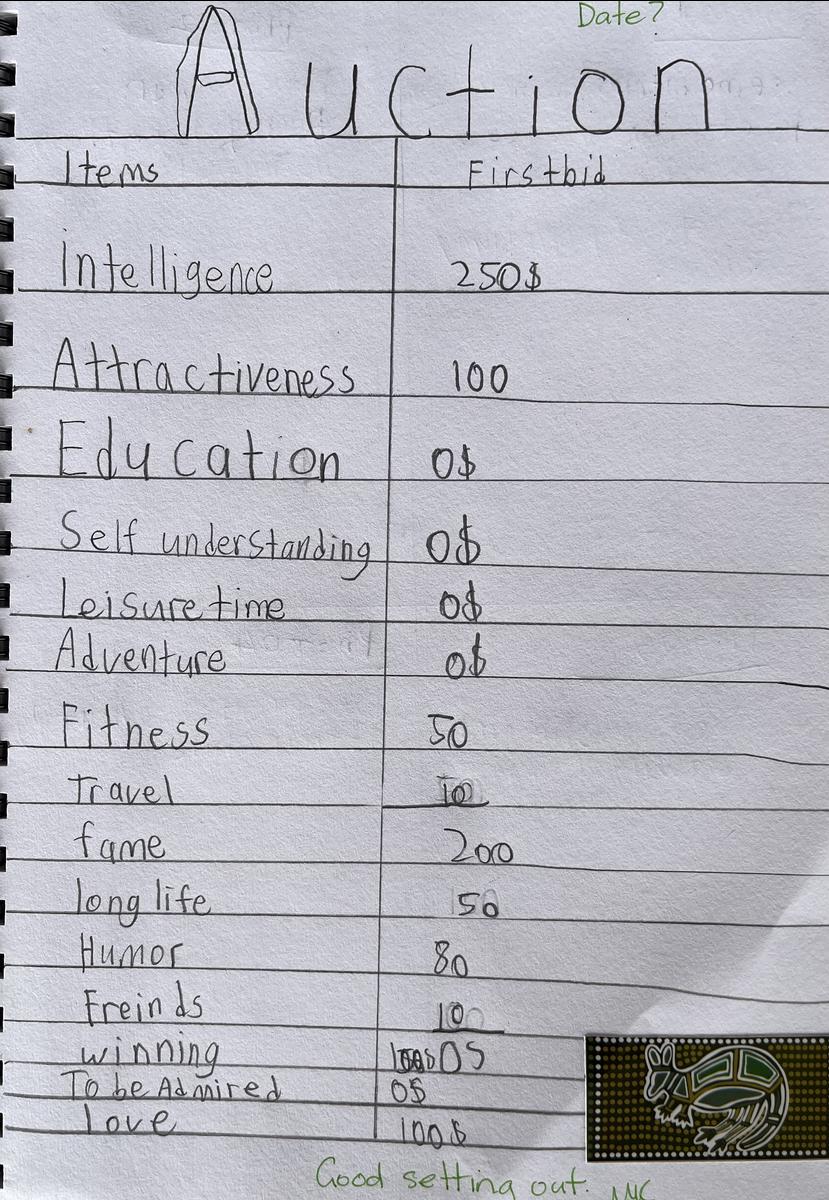 Date?
Auction
Items Firstbid
Intelligence 250$
Attractiveness 100
Education 0$
Self understanding 0$
Leisure time 0$
Adventure 0$
Fitness 50
Travel 10
fame 200
long life 50
Humor 80
Freinds 10
winning 0$
To be Admired 0$
love 100$
Good setting out.